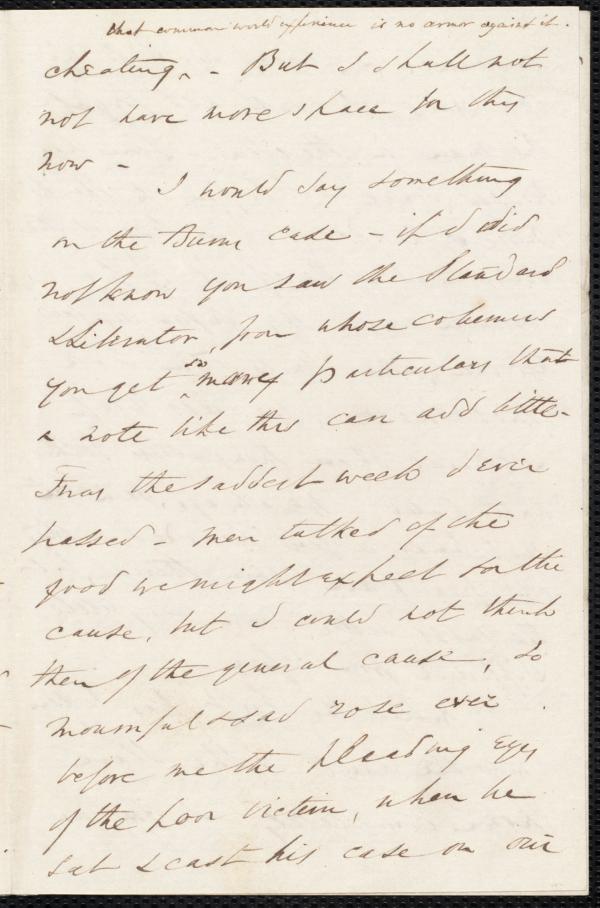 that common world experience is no armor against it.
cheating^ - But I shall not
not have more space for this
now -
I would say something
on the Burns case - if I did
not know you saw the Standard
& Liberator, from whose columns
you get so many particulars that
a note like this can add little -
Twas the saddest week I ever
passed - men talked of the
good we might expect for the
cause, but I could not think
then of the general cause, so
mournful & sad rose ever
before me the pleading eyes
of the poor victim, when he
sat & cast his case on our